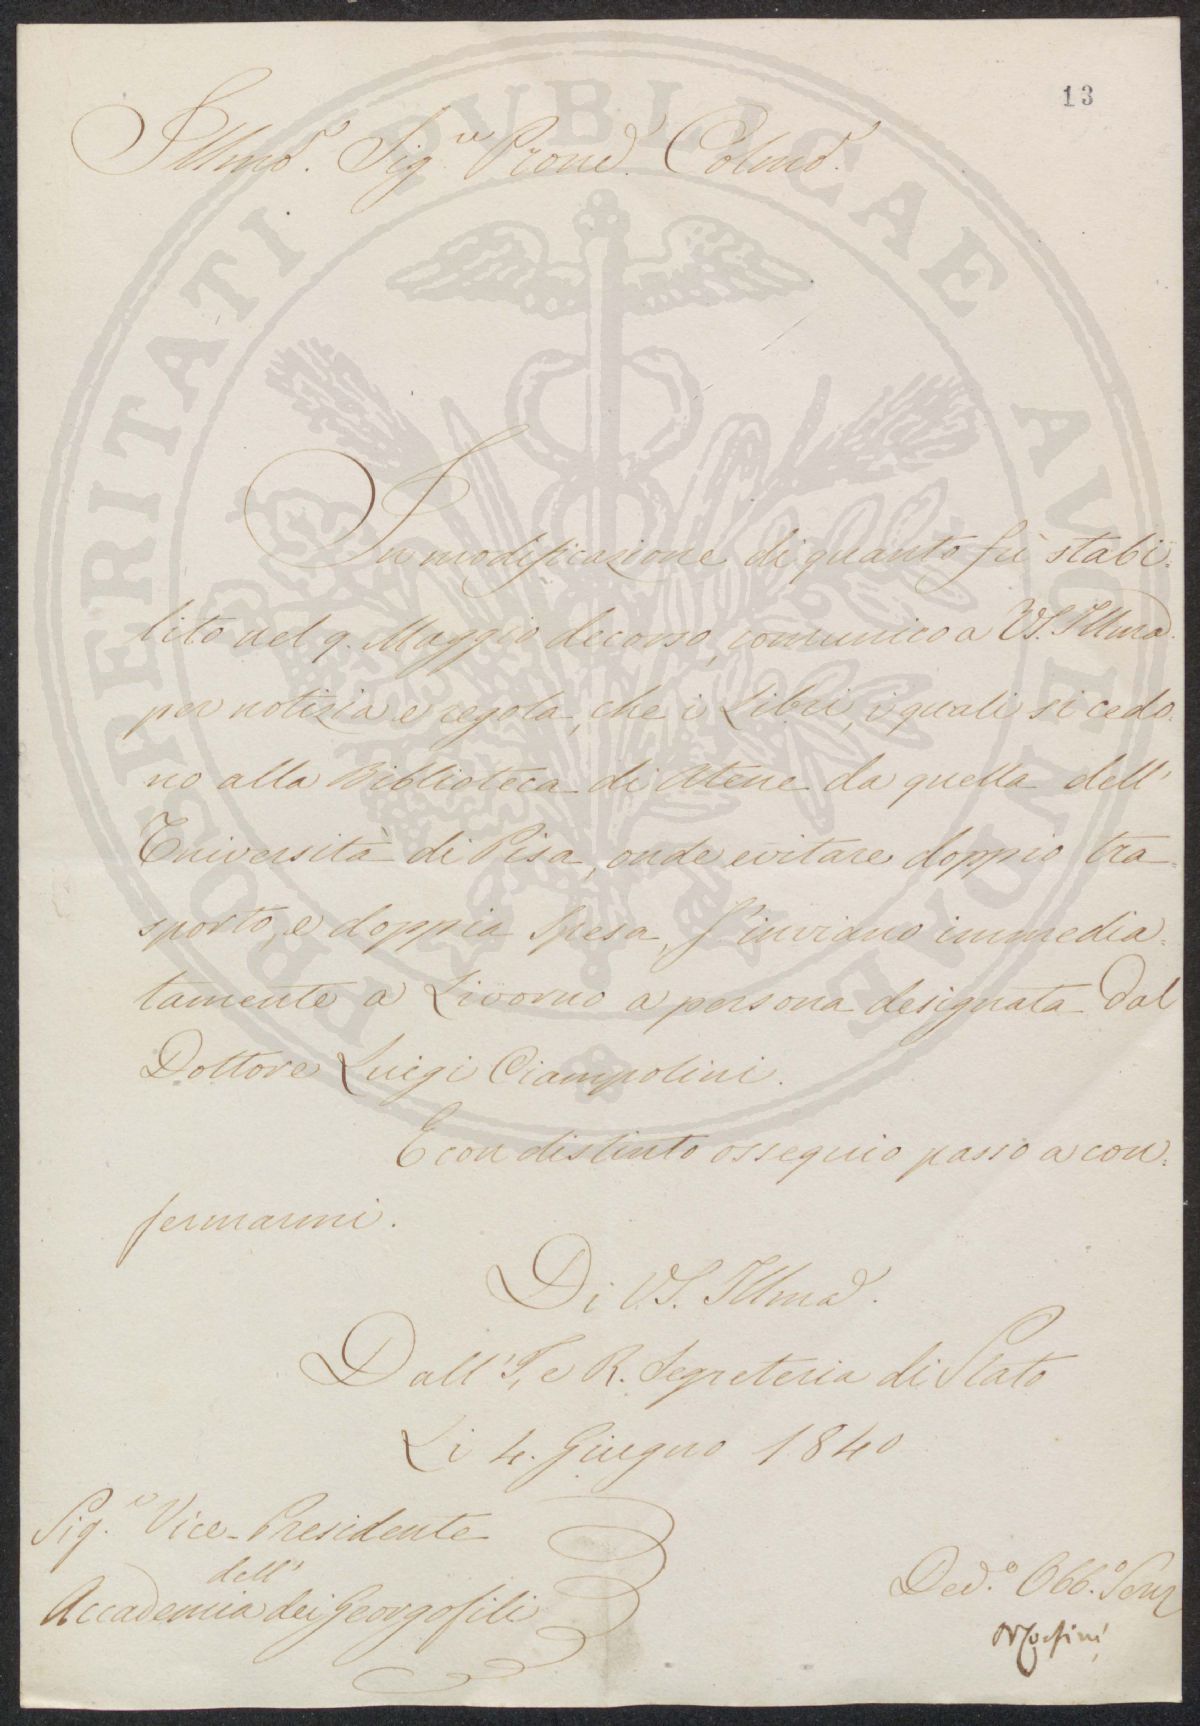 13
Illmo. Sig.re Prone. Colmo.
In modificazione di quanto fù stabi=
lito nel 9. Maggio decorso, comunico a VS. Illma.
per notizia e regola, che i Libri, i quali si cedo=
no alla Biblioteca di Atene da quella dell'
Università di Pisa, onde evitare doppio tra=
sporto, e doppia spesa, s'inviano immedia=
tamente a Livorno a persona designata dal
Dottore Luigi Ciampolini.
E con distinto ossequio passo a con=
fermarmi.
Di VS. Illma.
Dall'I. e R. Segreteria di Stato
Li 4. Giugno 1840
Sig.re Vice-Presidente
dell'
Accademia dei Georgofili
Ded.o Obb.o Serv
PROSPERITATI PUBLICAE AUGENDAE